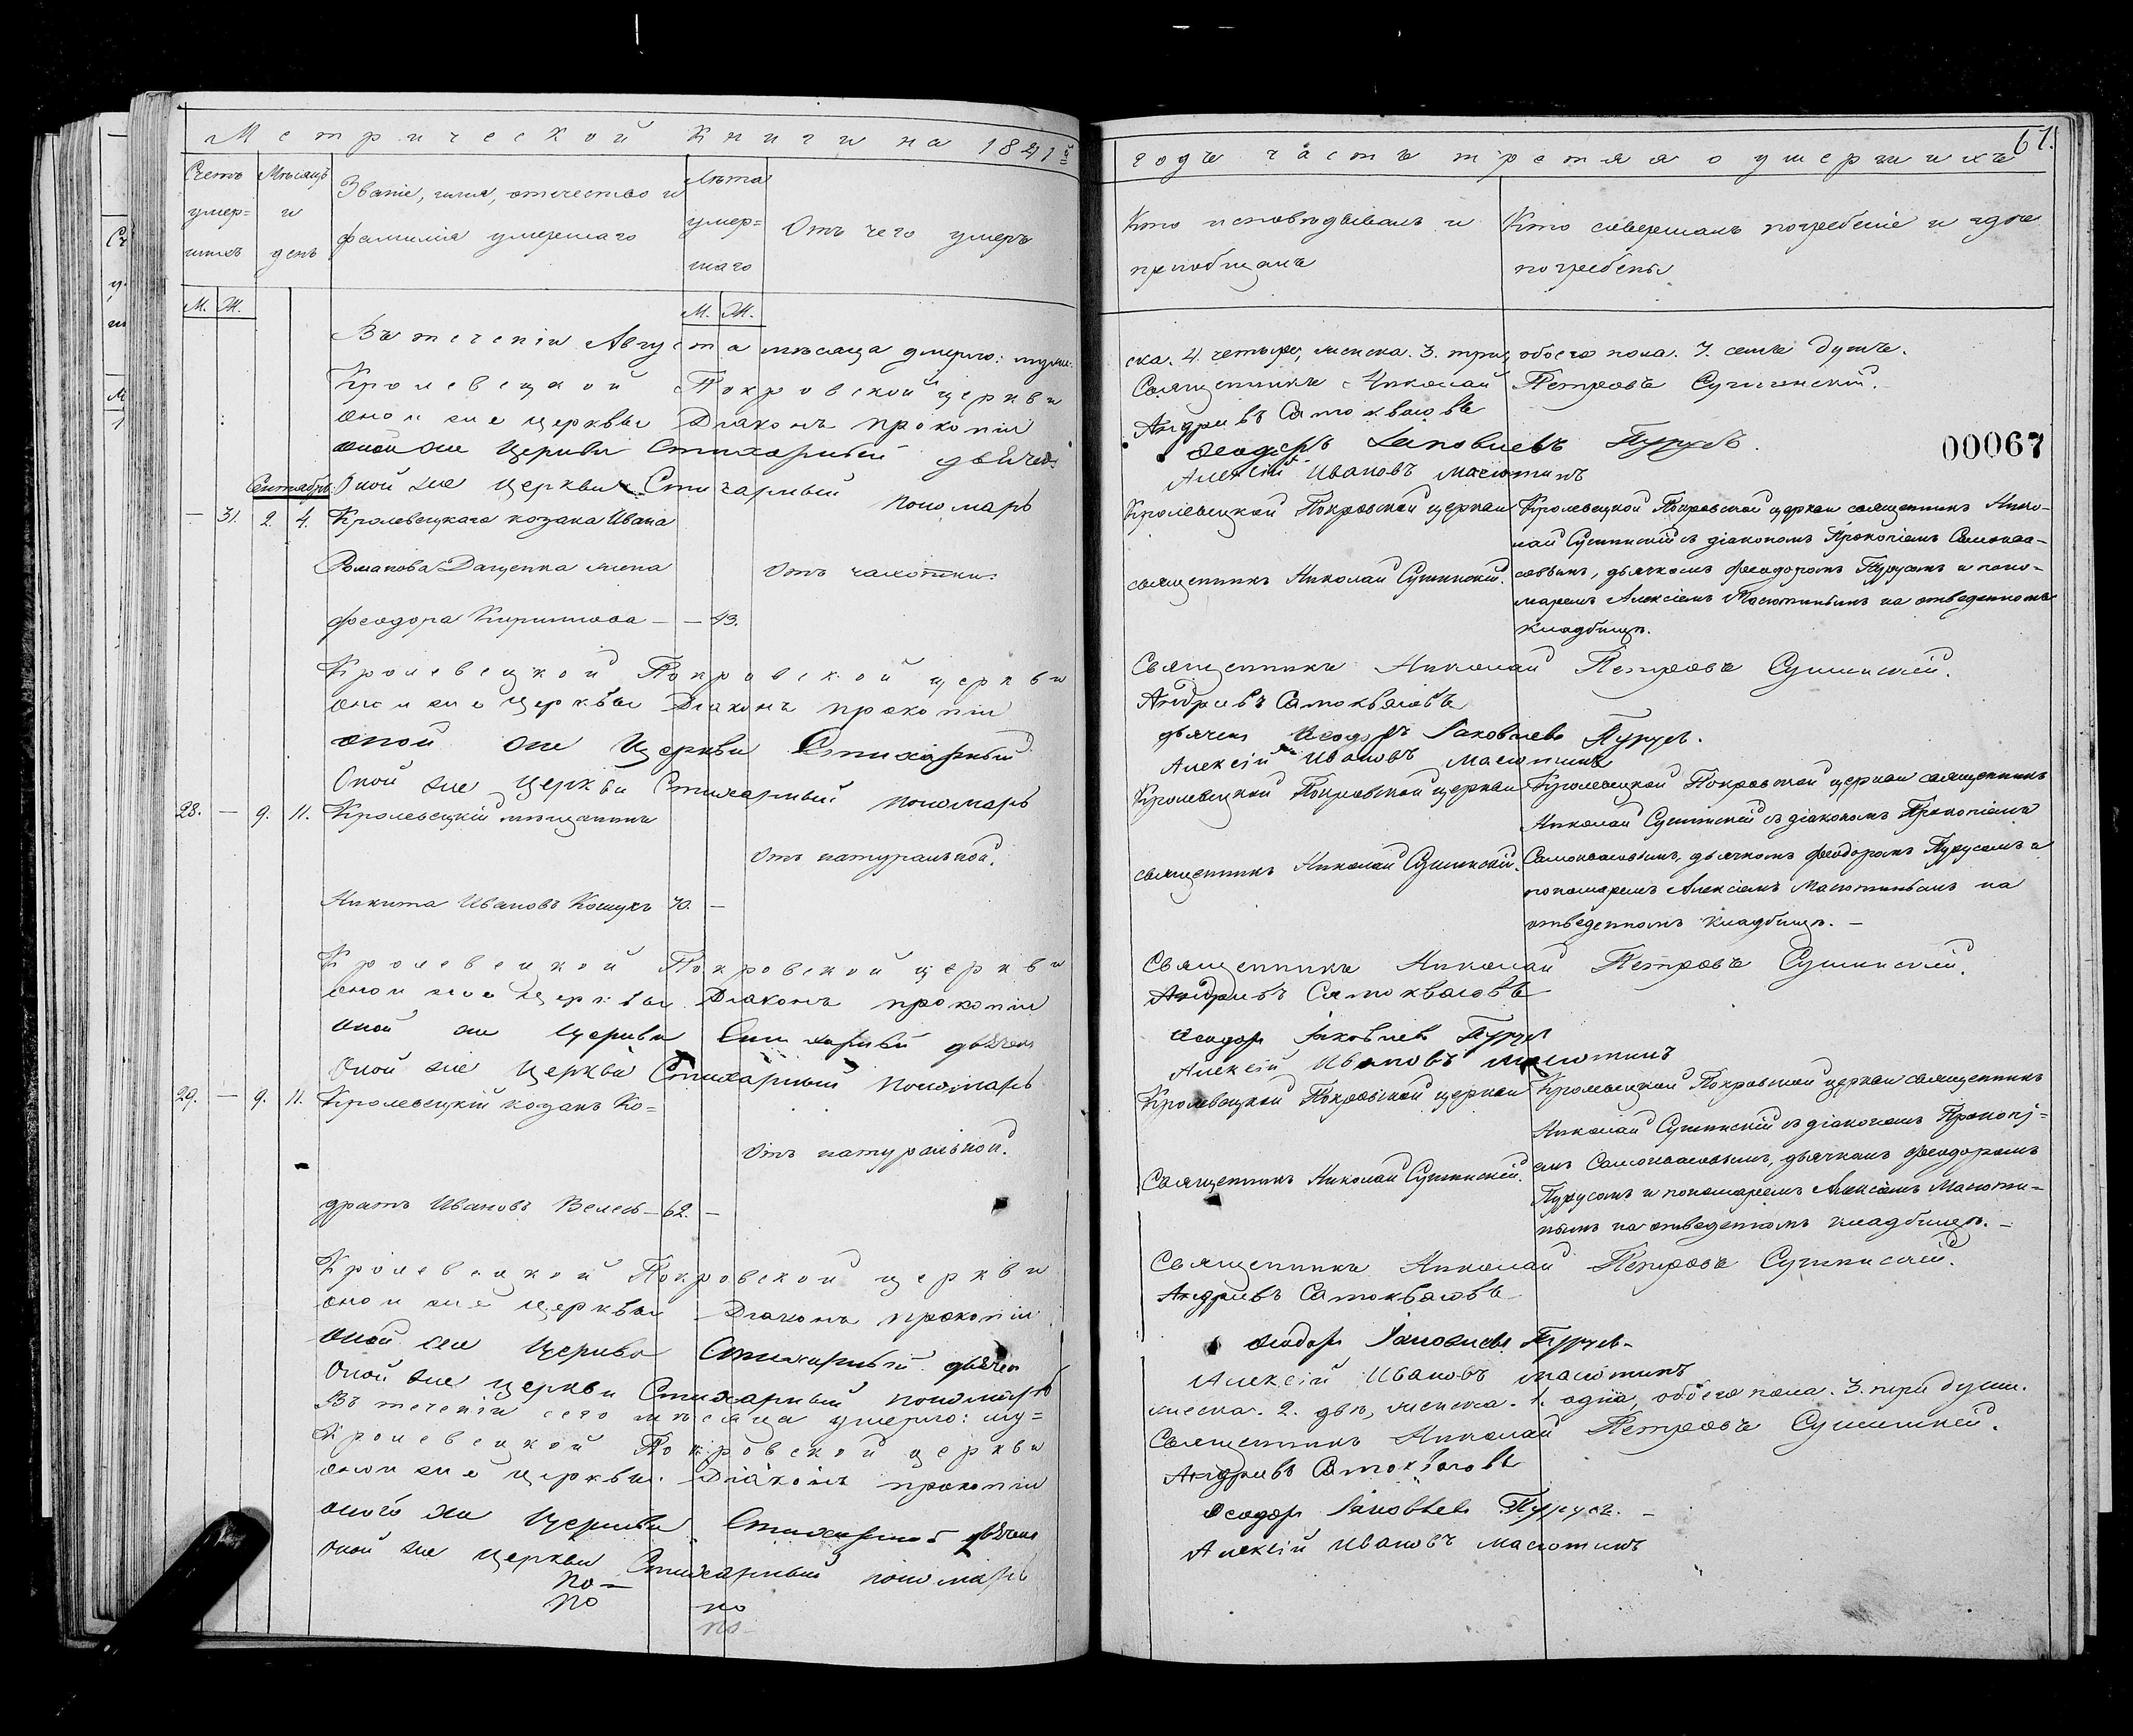 Метрической книги на 1841й
Счетъ умер= шихъ
Мѣсяцъ и день
Званіе, имя, отечество и фамилія умершаго
Лѣта умер= шаго
Отъ чего умеръ
М. Ж.
М. Ж.
Въ теченіи Августа мѣсяца умерло: муже-
Кролевецкой Покровской церкви
оной же церквы Діаконъ прокопій
оной же Церкви Стихарный дьячекъ
Оной же церкви Стихарный пономарь
Сентябрь
— 31. 2. 4. Кролевецкаго козака Ивана
Романова Даценка жена
Отъ чахотки.
Феодора Кириллова — — 43.
Кролевецкой Покровской церкви
оной же церквы Діаконъ прокопій
оной же Церкви Стихарный
Оной же церкви Стихарный пономарь
28. — 9. 11. Кролевецкій мещанинъ
Отъ натуральной.
Никита Ивановъ 70. —
Кролевецкой Покровской церкви
оной же церквы Діаконъ прокопій
оной же Церкви Стихарный дьячекъ
Оной же церкви Стихарный пономарь
29. — 9. 11. Кролевецкій козакъ Ко=
Отъ натуральной.
дратъ Ивановъ Велесь — 62. —
Кролевецкой Покровской церкви
оной же церквы Діаконъ прокопій
оной же Церкви Стихарный дьячек
Оной же церкви Стихарный пономарь
Въ теченіи сего мѣсяца умерло: му=
Кролевецкой Покровской церкви
оной же церквы Діаконъ прокопій
оной же Церкви Стихарный дьячекъ
Оной же церкви Стихарный пономарь
по —
по по
по
67.
годъ часть третяя о умершихъ
Кто исповѣдывалъ и пріобщалъ
Кто совершалъ погребеніе и гдѣ погребены
ска. 4. четыре, женска. 3. три, обоего пола. 7. семь душъ.
Священникъ Николай Петровъ Сушинскій.
Андриевъ Самоквасовъ
Феодоръ Іаковлевъ Пурусъ.
00067
Алексій Ивановъ Масютинъ
Кролевецкой Покровской церкви
священникъ Николай Сушинскій.
Кролевецкой Покровской церкви священникъ Нико-
лай Сушинскій съ діакономъ Прокопіемъ Самоква-
совымъ, дьячкомъ Феодоромъ Пурусомъ и поно-
маремъ Алексіемъ Масютинымъ на отведенномъ
кладбищѣ.
Священникъ Николай Петровъ Сушинскій.
Андриевъ Самоквасовъ
дьячек Феодоръ Іаковлевъ Пурусъ.
Алексій Ивановъ Масютинъ
Кролевецкой Покровской церкви
священникъ Николай Сушинскій.
Кролевецкой Покровской церкви священникъ
Николай Сушинскій съ діакономъ Прокопіемъ
Самоквасовымъ, дьячкомъ Феодоромъ Пурусомъ и
пономаремъ Алексіемъ Масютинымъ на
отведенномъ кладбищѣ. —
Священникъ Николай Петровъ Сушинскій.
Андриевъ Самоквасовъ
Феодоръ Іаковлевъ Пурусъ
Алексій Ивановъ Масютинъ
Кролевецкой Покровской церкви
Священникъ Николай Сушинскій.
Кролевецкой Покровской церкви священникъ
Николай Сушинскій съ діакономъ Прокопі=
емъ Самоквасовымъ, дьячкомъ Феодоромъ
Пурусомъ и пономаремъ Алексіемъ Масюти-
нымъ на отведенномъ кладбищѣ. —
Священникъ Николай Петровъ Сушинскій.
Андриевъ Самоквасовъ
Феодоръ Іаковлевъ Пурусъ
Алексій Ивановъ Масютинъ
жеска. 2. двѣ, женска. 1. одна, обоего пола. 3. три души.
Священникъ Николай Петровъ Сушинскій.
Андриевъ Самоквасовъ
Феодоръ Іаковлевъ Пурусъ. —
Алексій Ивановъ Масютинъ